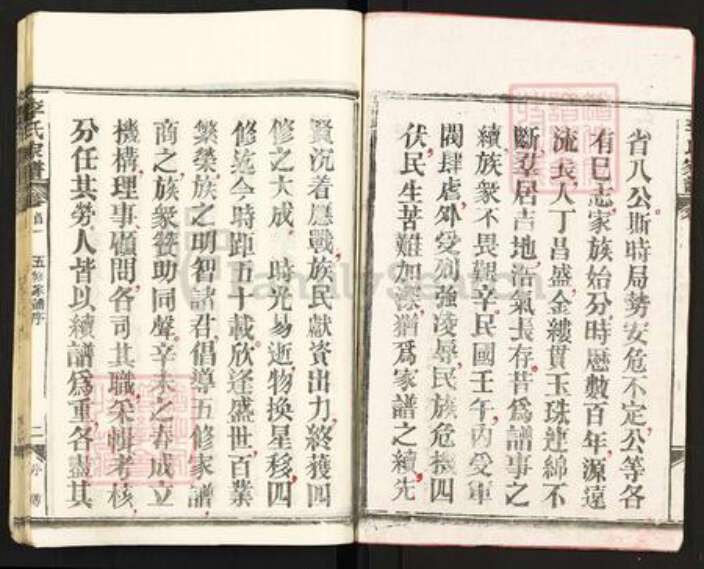 省八公斯時局勢安危不定公等各
有已志家族始分時歷數百年源遠
流長人丁昌盛金縷貫玉珠連綿不
斷羣居吉地浩氣長存昔為譜事之
續族眾不畏艱辛民國壬午內受軍
閥肆虐外受列強凌辱民族危機四
伏民生苦難加深猶為家譜之續先
賢沉着應戰族民獻資出力終獲四
修之大成 時光易逝物換星移四
修迄今時距五十載欣逢盛世百業
繁榮族之明智諸君倡導五修家譜
商之族眾贊助同聲辛未之春成立
機構理事顧問各司其職采輯考核
分任其勞人皆以續譜為重各盡其
李氏家譜 卷首一 五修家譜序 二
FamilySearch